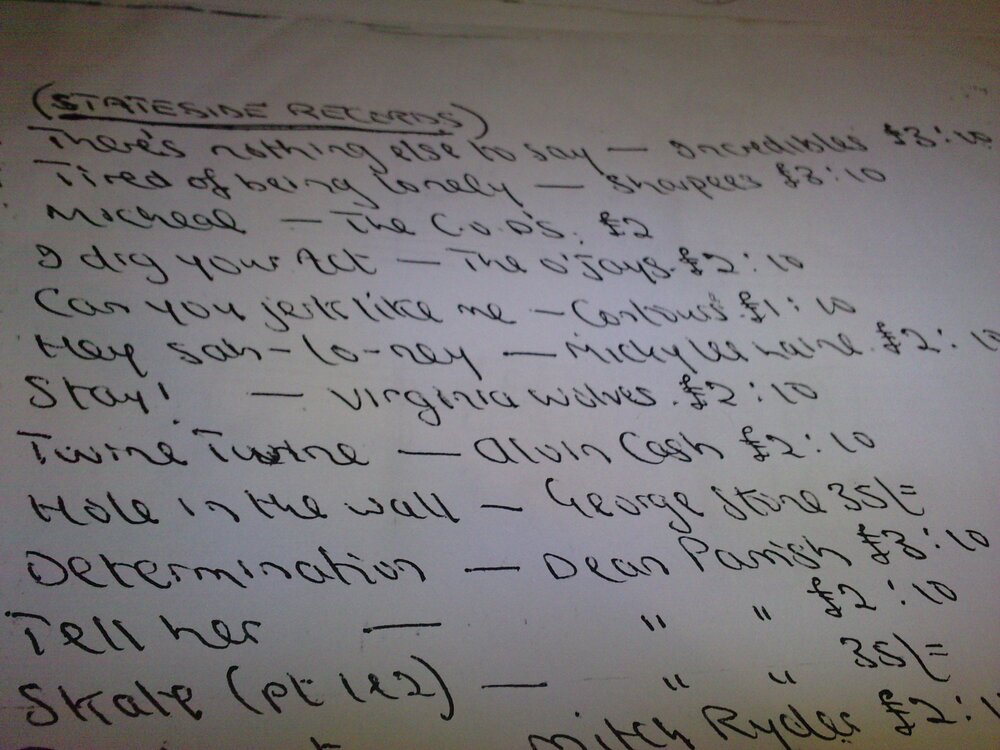 (STATESIDE RECORDS)
There's nothing else to say — Incredibles £3:10
Tired of being lonely — Sharpees £3:10
Micheal — The C.O.D'S. £2
I dig your Act — The O'Jays. £2:10
Can you jerk like me — Contours £1:10
Hey sah-lo-ney — Micky lee Lane. £2:10
Stay! — Virginia wolves. £2:10
Twine Twine — Alvin Cash £2:10
Hole in the wall — George Stone 35/=
Determination — Dean Parrish £3:10
Tell her — " " £2:10
Skate (pt 1&2) — " " 35/=
Mitch Ryder £2: